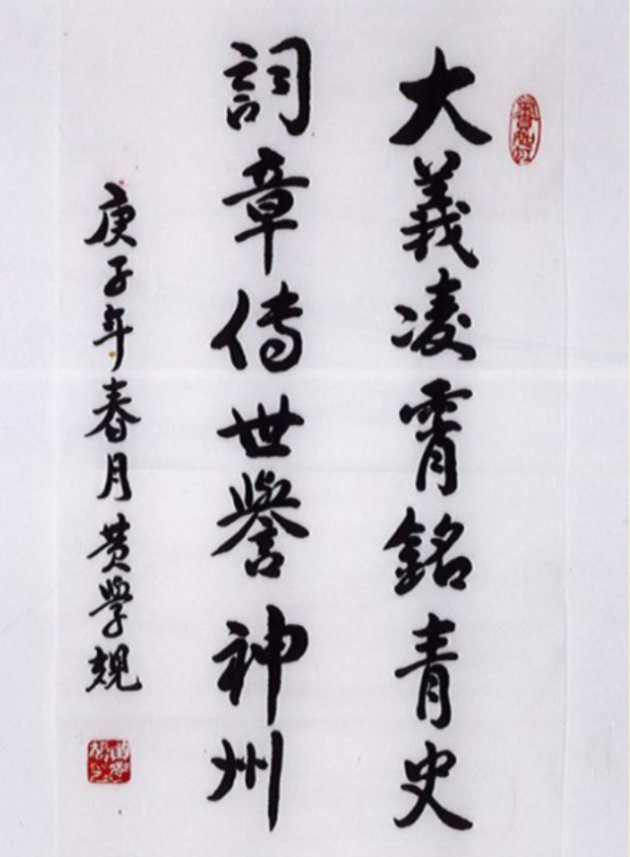 大義凌霄銘青史
詞章傳世譽神州
庚子年春月黄學規